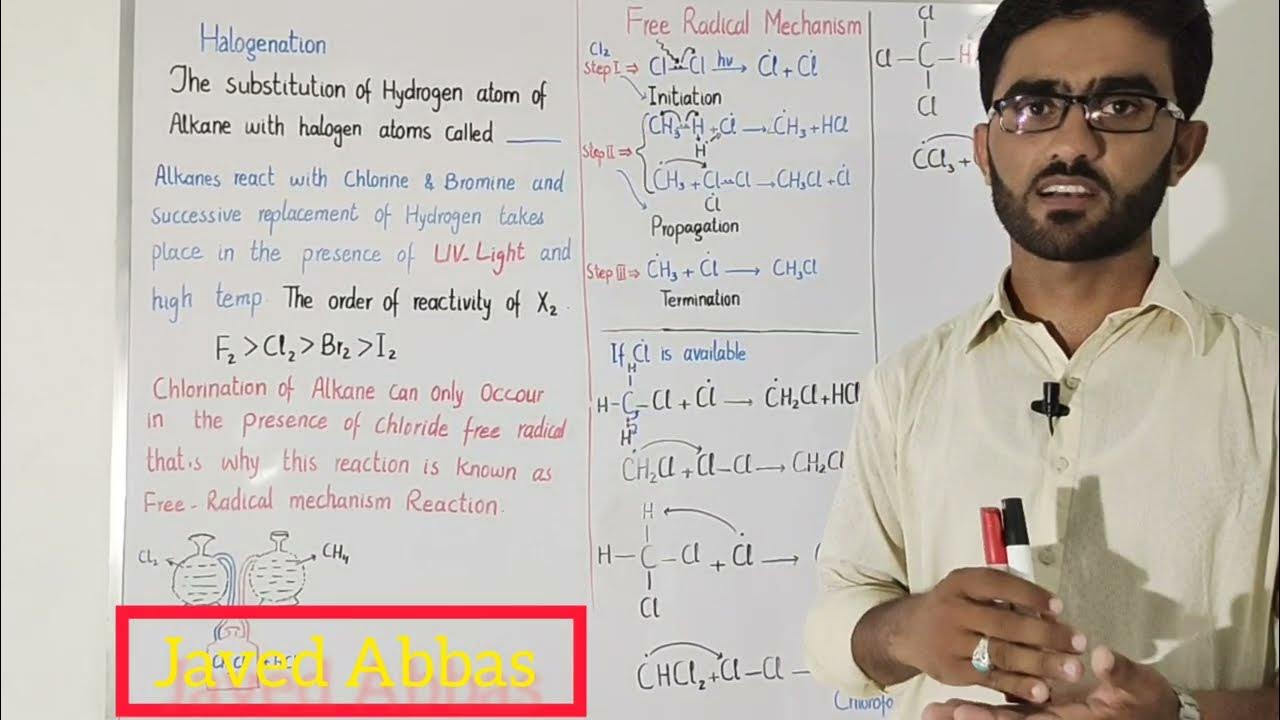 Halogenation
The substitution of Hydrogen atom of
Alkane with halogen atoms called ____
Alkanes react with Chlorine & Bromine and
Successive replacement of Hydrogen takes
place in the presence of UV-Light and
high temp. The order of reactivity of X₂.
F₂ >Cl₂> Br₂ >I₂
Chlorination of Alkane can only Occour
in the presence of Chloride free radical
that,s why this reaction is known as
Free-Radical mechanism Reaction.
Cl₂
CH₄
Javed Abbas
Free Radical Mechanism
Cl₂
Step I ⇒ Cl-Cl hν→ Ċl + Ċl
Initiation
Step II ⇒ CH₃-H + Ċl → ĊH₃ + HCl
H
ĊH₃ + Cl-Cl → CH₃Cl + Ċl
Ċl
Propagation
Step III ⇒ ĊH₃ + Ċl → CH₃Cl
Termination
If Ċl is available
H
H-C-Cl + Ċl → ĊH₂Cl + HCl
H
ĊH₂Cl + Cl-Cl → CH₂Cl
H
H-C-Cl + Ċl →
Cl
ĊHCl₂ + Cl-Cl
Chlorofo
Cl
Cl-C-H
Cl
ĊCl₃ +